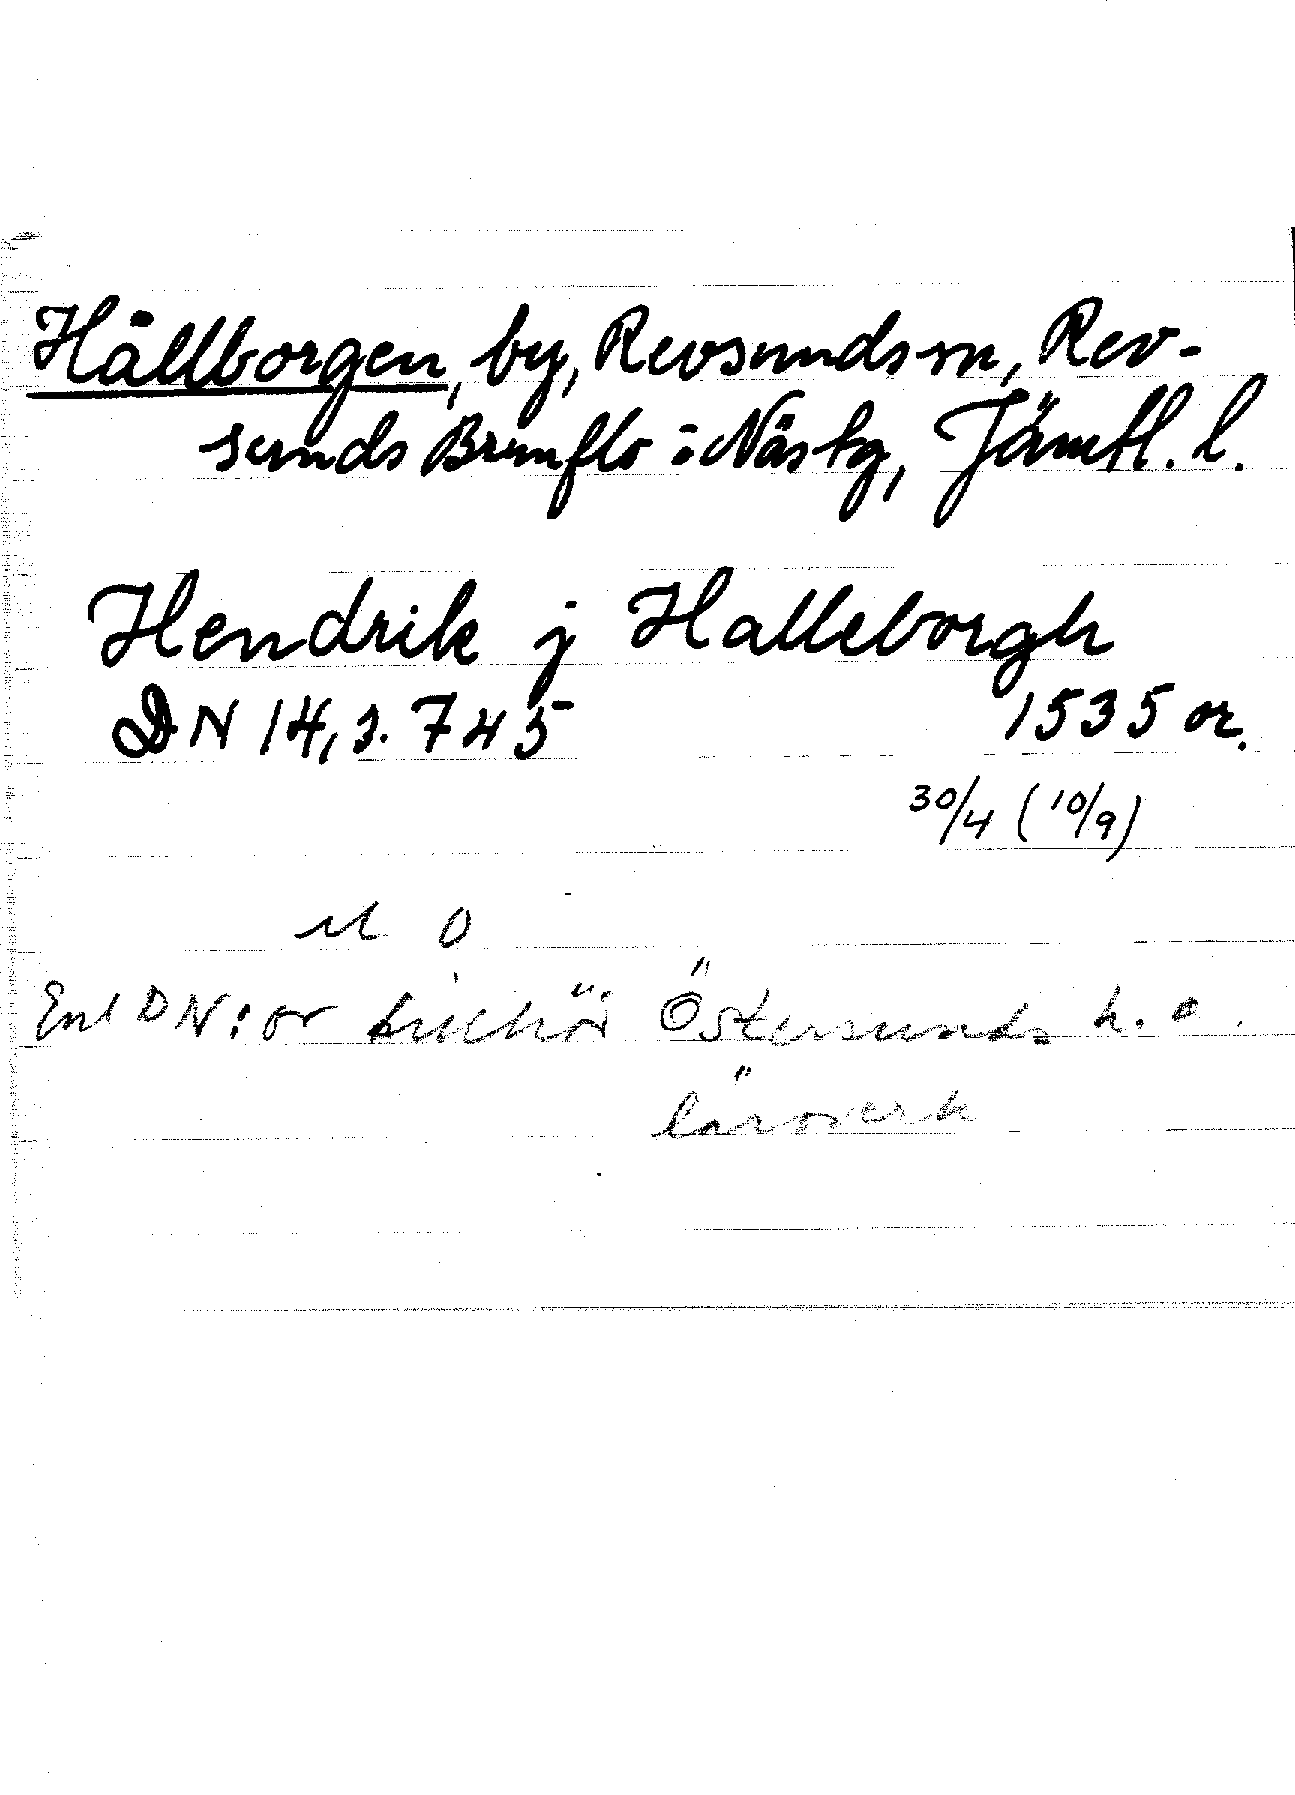 Hållborgen, by, Revsunds sn, Rev-
sunds Brunflo o Näs tg, Jämtl. l.
Hendrik j Halleborgh
DN 14, s. 745 1535 or.
30/4 (10/9)
Enl DN: or tillhör Östersunds h. a.
läroverk